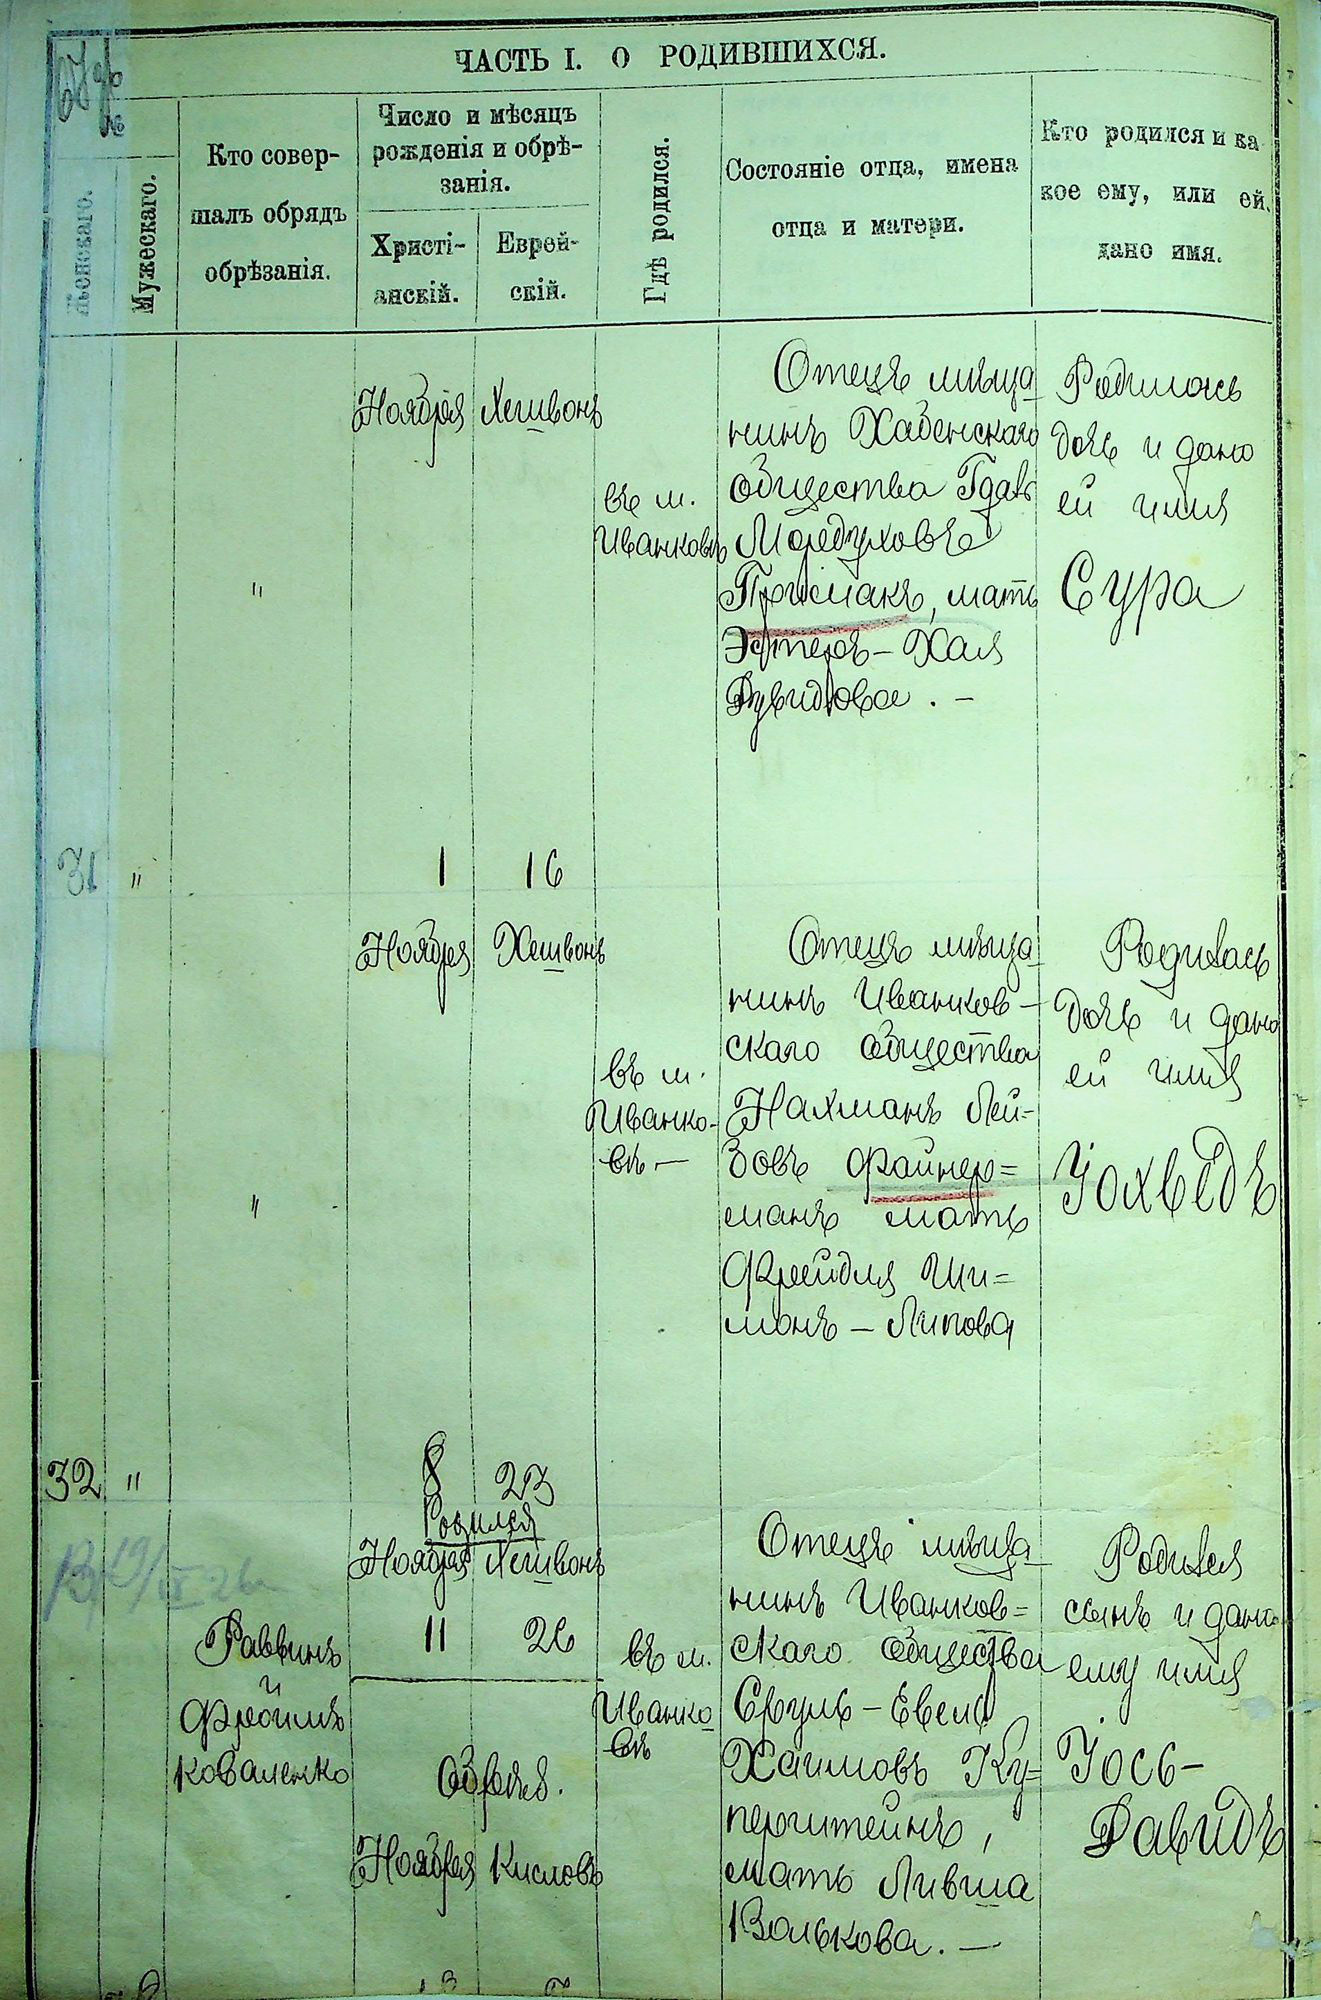 ЧАСТЬ I. О РОДИВШИХСЯ.
№
Женскаго.
Мужескаго.
Кто совер-
шалъ обрядъ
обрѣзанія.
Число и мѣсяцъ
рожденія и обрѣ-
занія.
Христі-
анскій.
Еврей-
скій.
Гдѣ родился.
Состояніе отца, имена
отца и матери.
Кто родился и ка
кое ему, или ей,
дано имя.
31
"
"
Ноября
1
Хешвонъ
16
въ м.
Иванковѣ
Отецъ мѣща
нинъ Хабенскаго
общества
Мордуховъ
Примакъ, мать
Эстеръ – Хая
. –
Родилась
дочь и дано
ей имя
Сура
32
"
"
Ноября
8
Хешвонъ
23
въ м.
Иванко-
вѣ –
Отецъ мѣща
нинъ Иванков-
скаго общества
Нахманъ Лей-
зовъ Файнер=
манъ мать
Фрейдля Ши=
монъ – Липова
Родилась
дочь и дано
ей имя
Іохведъ
Раввинъ
и
Фроимъ
Коваленко
Родился
Ноября
11
Хешвонъ
26
Обрѣз.
Ноября
Кислевъ
въ м.
Иванко
вѣ
Отецъ мѣща
нинъ Иванков=
скаго общества
Сруль – Евель
Хаимовъ Ку=
перштейнъ,
мать Лившa
Волькова. –
Родился
сынъ и дано
ему имя
Іось –
Давидъ